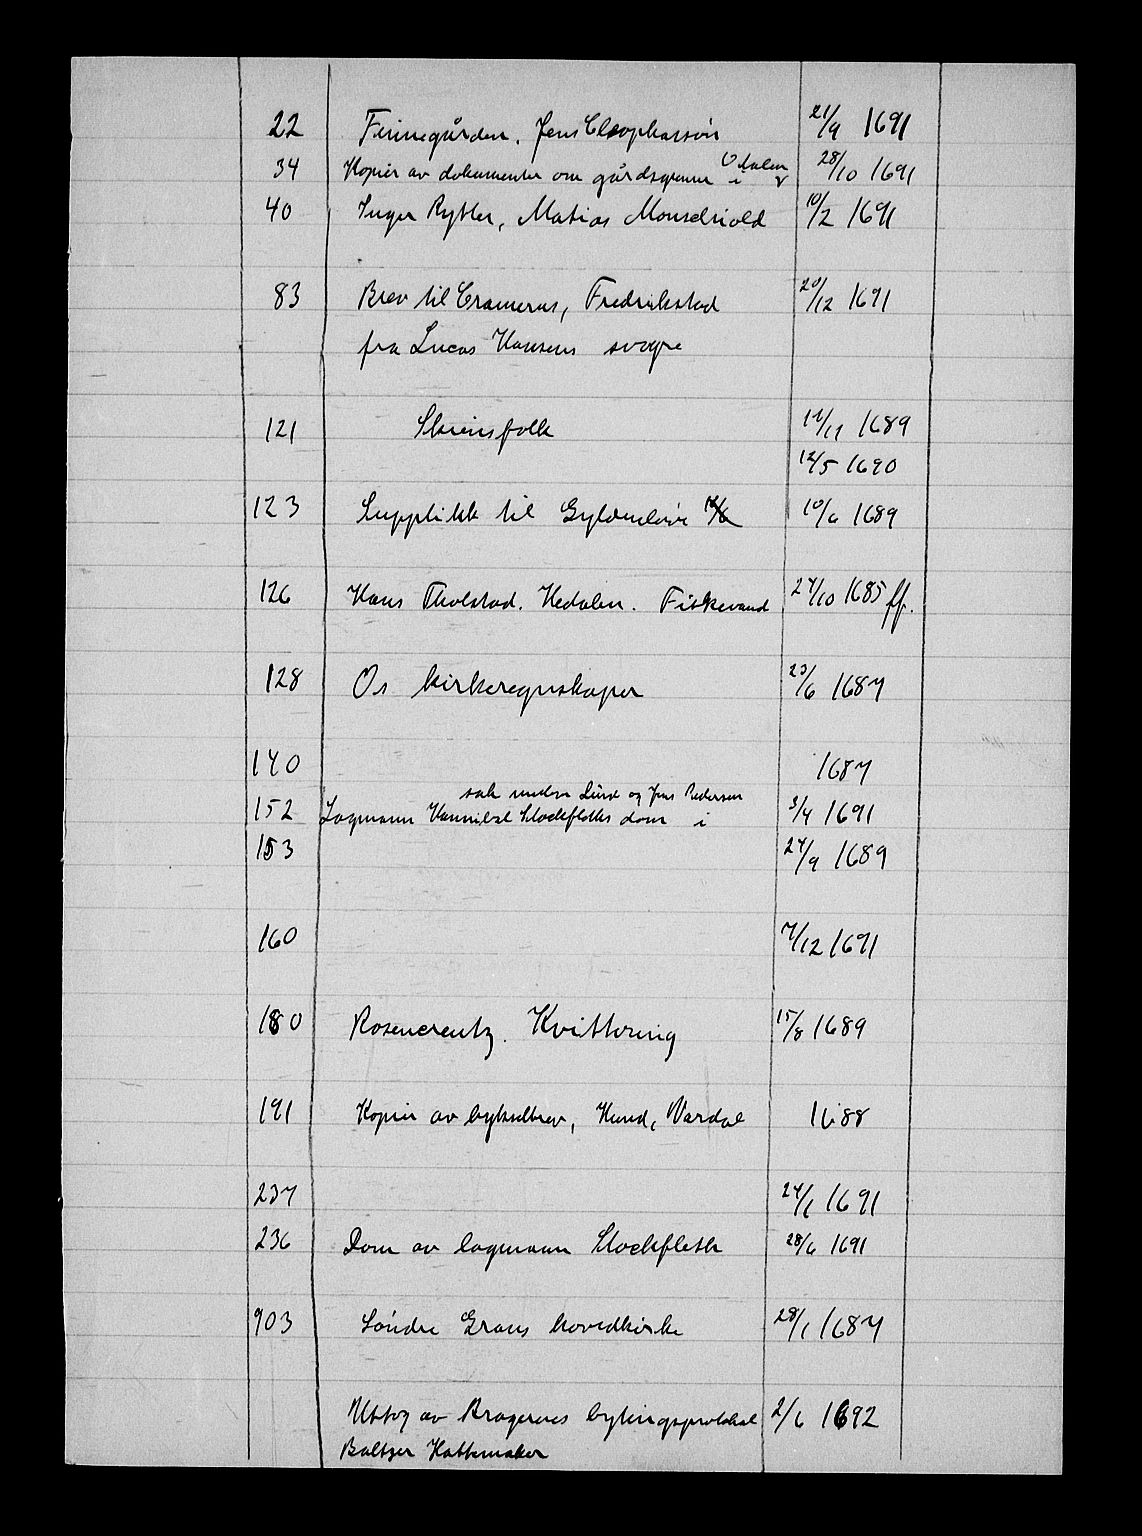 22 Finnegården. Jens Cleophassøn 21/9 1691
34 Kopier av dokumenter om gårdsgrenne i Odalen 28/10 1691
40 Inger Rytter, Matias Monsehiold 10/2 1691
83 Brev til Cramerus, Fredrikstad 20/12 1691
fra Lucas Hansens svogre
121 Skiensfolk 11/11 1689
12/5 1690
123 Supplikk til Gyldenløve 10/6 1689
126 Hans Tholstad. Hedalen. Fiskevand 27/10 1685 ff.
128 Os kirkeregnskaper 23/6 1687
140 1687
sak mellom Lund og Jens Pedersen
152 Lagmann Hannibal Stockfleths dom i 3/4 1691
153 27/9 1689
160 7/12 1691
180 Rosencreutz. Kvittering 15/8 1689
191 Kopier av bykselbrev, Hund, Vardal 1688
237 24/1 1691
236 Dom av lagmann Stockfleth 28/6 1691
903 Søndre Grans hovedkirke 28/1 1687
Uttog av Bragernes bytingsprotokol 2/6 1692
Baltzer Hattemaker